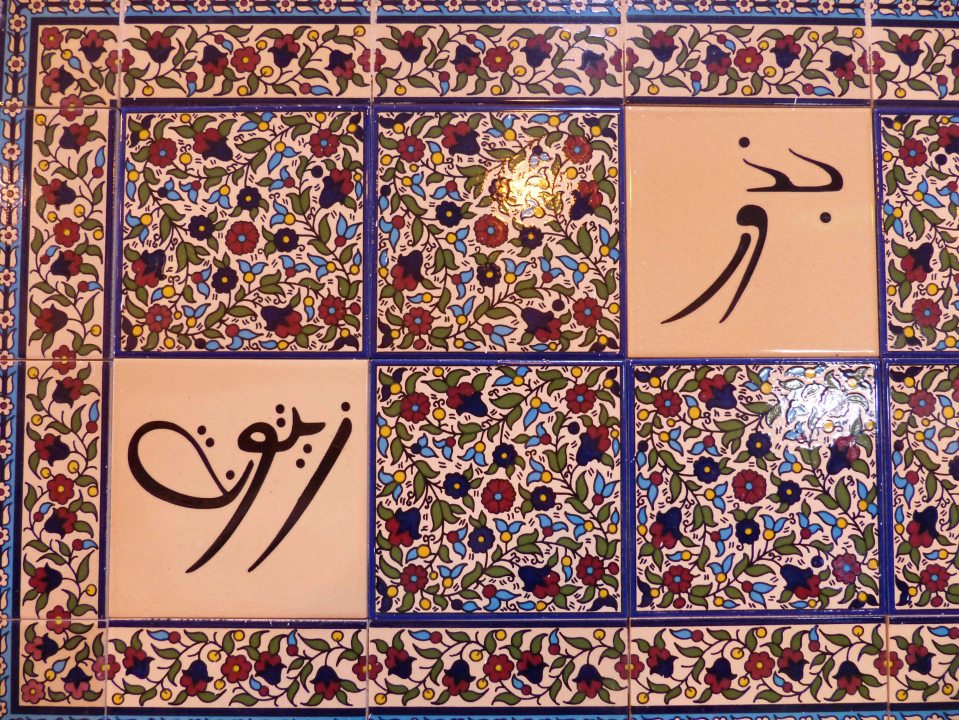 بذور
زيتونة